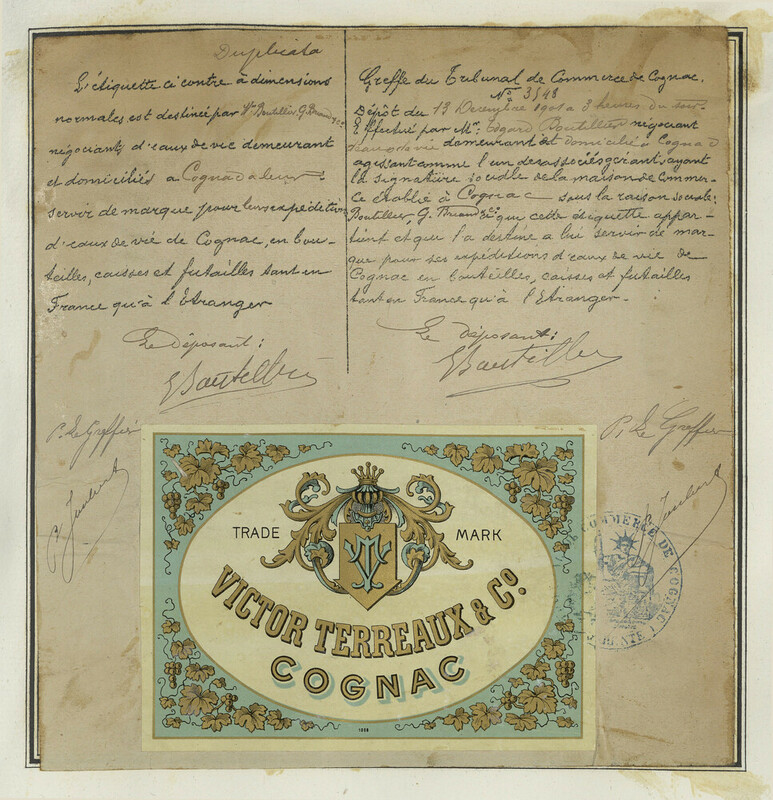 Duplicata
L'étiquette ci contre à dimensions
normales est destinée par Vve Boutillier, G. Briand & Cie
négociants d'eaux de vie demeurant
et domiciliés à Cognac à leur
servir de marque pour leurs expéditions
d'eaux de vie de Cognac, en bou-
teilles, caisses et futailles tant en
France qu'à l'Etranger
Le déposant:
P. Le Greffier
Greffe du Tribunal de Commerce de Cognac.
No 3548
Dépôt du 13 Décembre 1901 à 3 heures du soir
Effectué par Mr. Edgard Boutillier négociant
d'eaux de vie demeurant et domicilié à Cognac
agissant comme l'un des associés gérants ayant
la signature sociale de la maison de Commer-
ce établie à Cognac sous la raison sociale:
Boutillier, G. Briand & Cie que cette étiquette appar-
tient et que l'a destine a lui servir de mar-
que pour ses expéditions d'eaux de vie de
Cognac en bouteilles, caisses et futailles
tant en France qu'à l'Etranger.
Le déposant:
P. Le Greffier
TRADE MARK
VICTOR TERREAUX & Co.
COGNAC
COMMERCE DE COGNAC